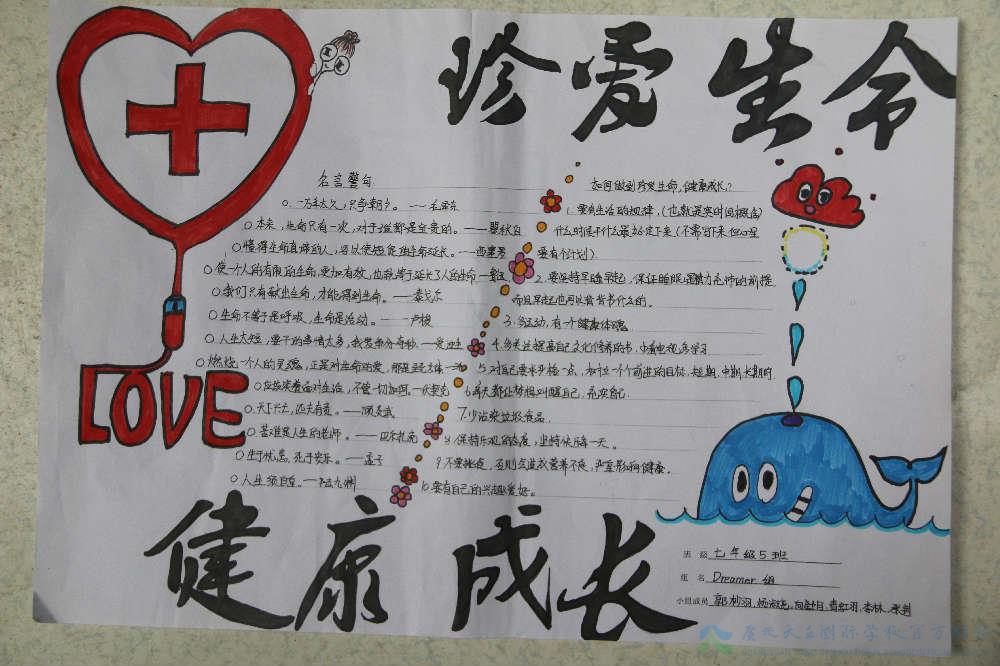 珍爱生命
名言警句
○一万年太久，只争朝夕。——毛泽东
○本来，生命只有一次，对于谁都是宝贵的。——瞿秋白
○懂得生命真谛的人，可以使短促的生命延长。——西塞罗
○使一个人的有限的生命，更加有效，也就等于延长了人的生命
○我们只有献出生命，才能得到生命。——泰戈尔
○生命不等于是呼吸，生命是活动。——卢梭
○人生太短，要干的事情太多，我要争分夺秒。——爱迪生
○燃烧一个人的灵魂，正是对生命的爱
○应当笑着面对生活，不管一切如何。——伏契克
○天下兴亡，匹夫有责。——顾炎武
○苦难是人生的老师。——巴尔扎克
○生于忧患，死于安乐。——孟子
○人生须自重。——陆九渊
如何做到珍爱生命，健康成长？
1.要有生活的规律，（也就是实时间概念）
什么时候干什么最好定下来（不需写下来但心里
要有个计划）
2.要坚持早睡早起，保证睡眠是精力充沛的前提
而且早起也可以背背书什么的。
3.多运动，有个健康体魄
4.多关注提高自己文化修养的书，少看电视多学习
5.对自己要求严格一点，树立一个前进的目标，短期，中期，长期的
6.每天都让梦想叫醒自己，充实自己
7.少沾染垃圾食品。
8.保持乐观的态度，坚持快乐每一天。
9.不要挑食，否则会造成营养不良，严重影响健康。
10.要有自己的兴趣爱好。
LOVE
健康成长
班 级 七年级5班
组 名 Dreamer 组
小组成员